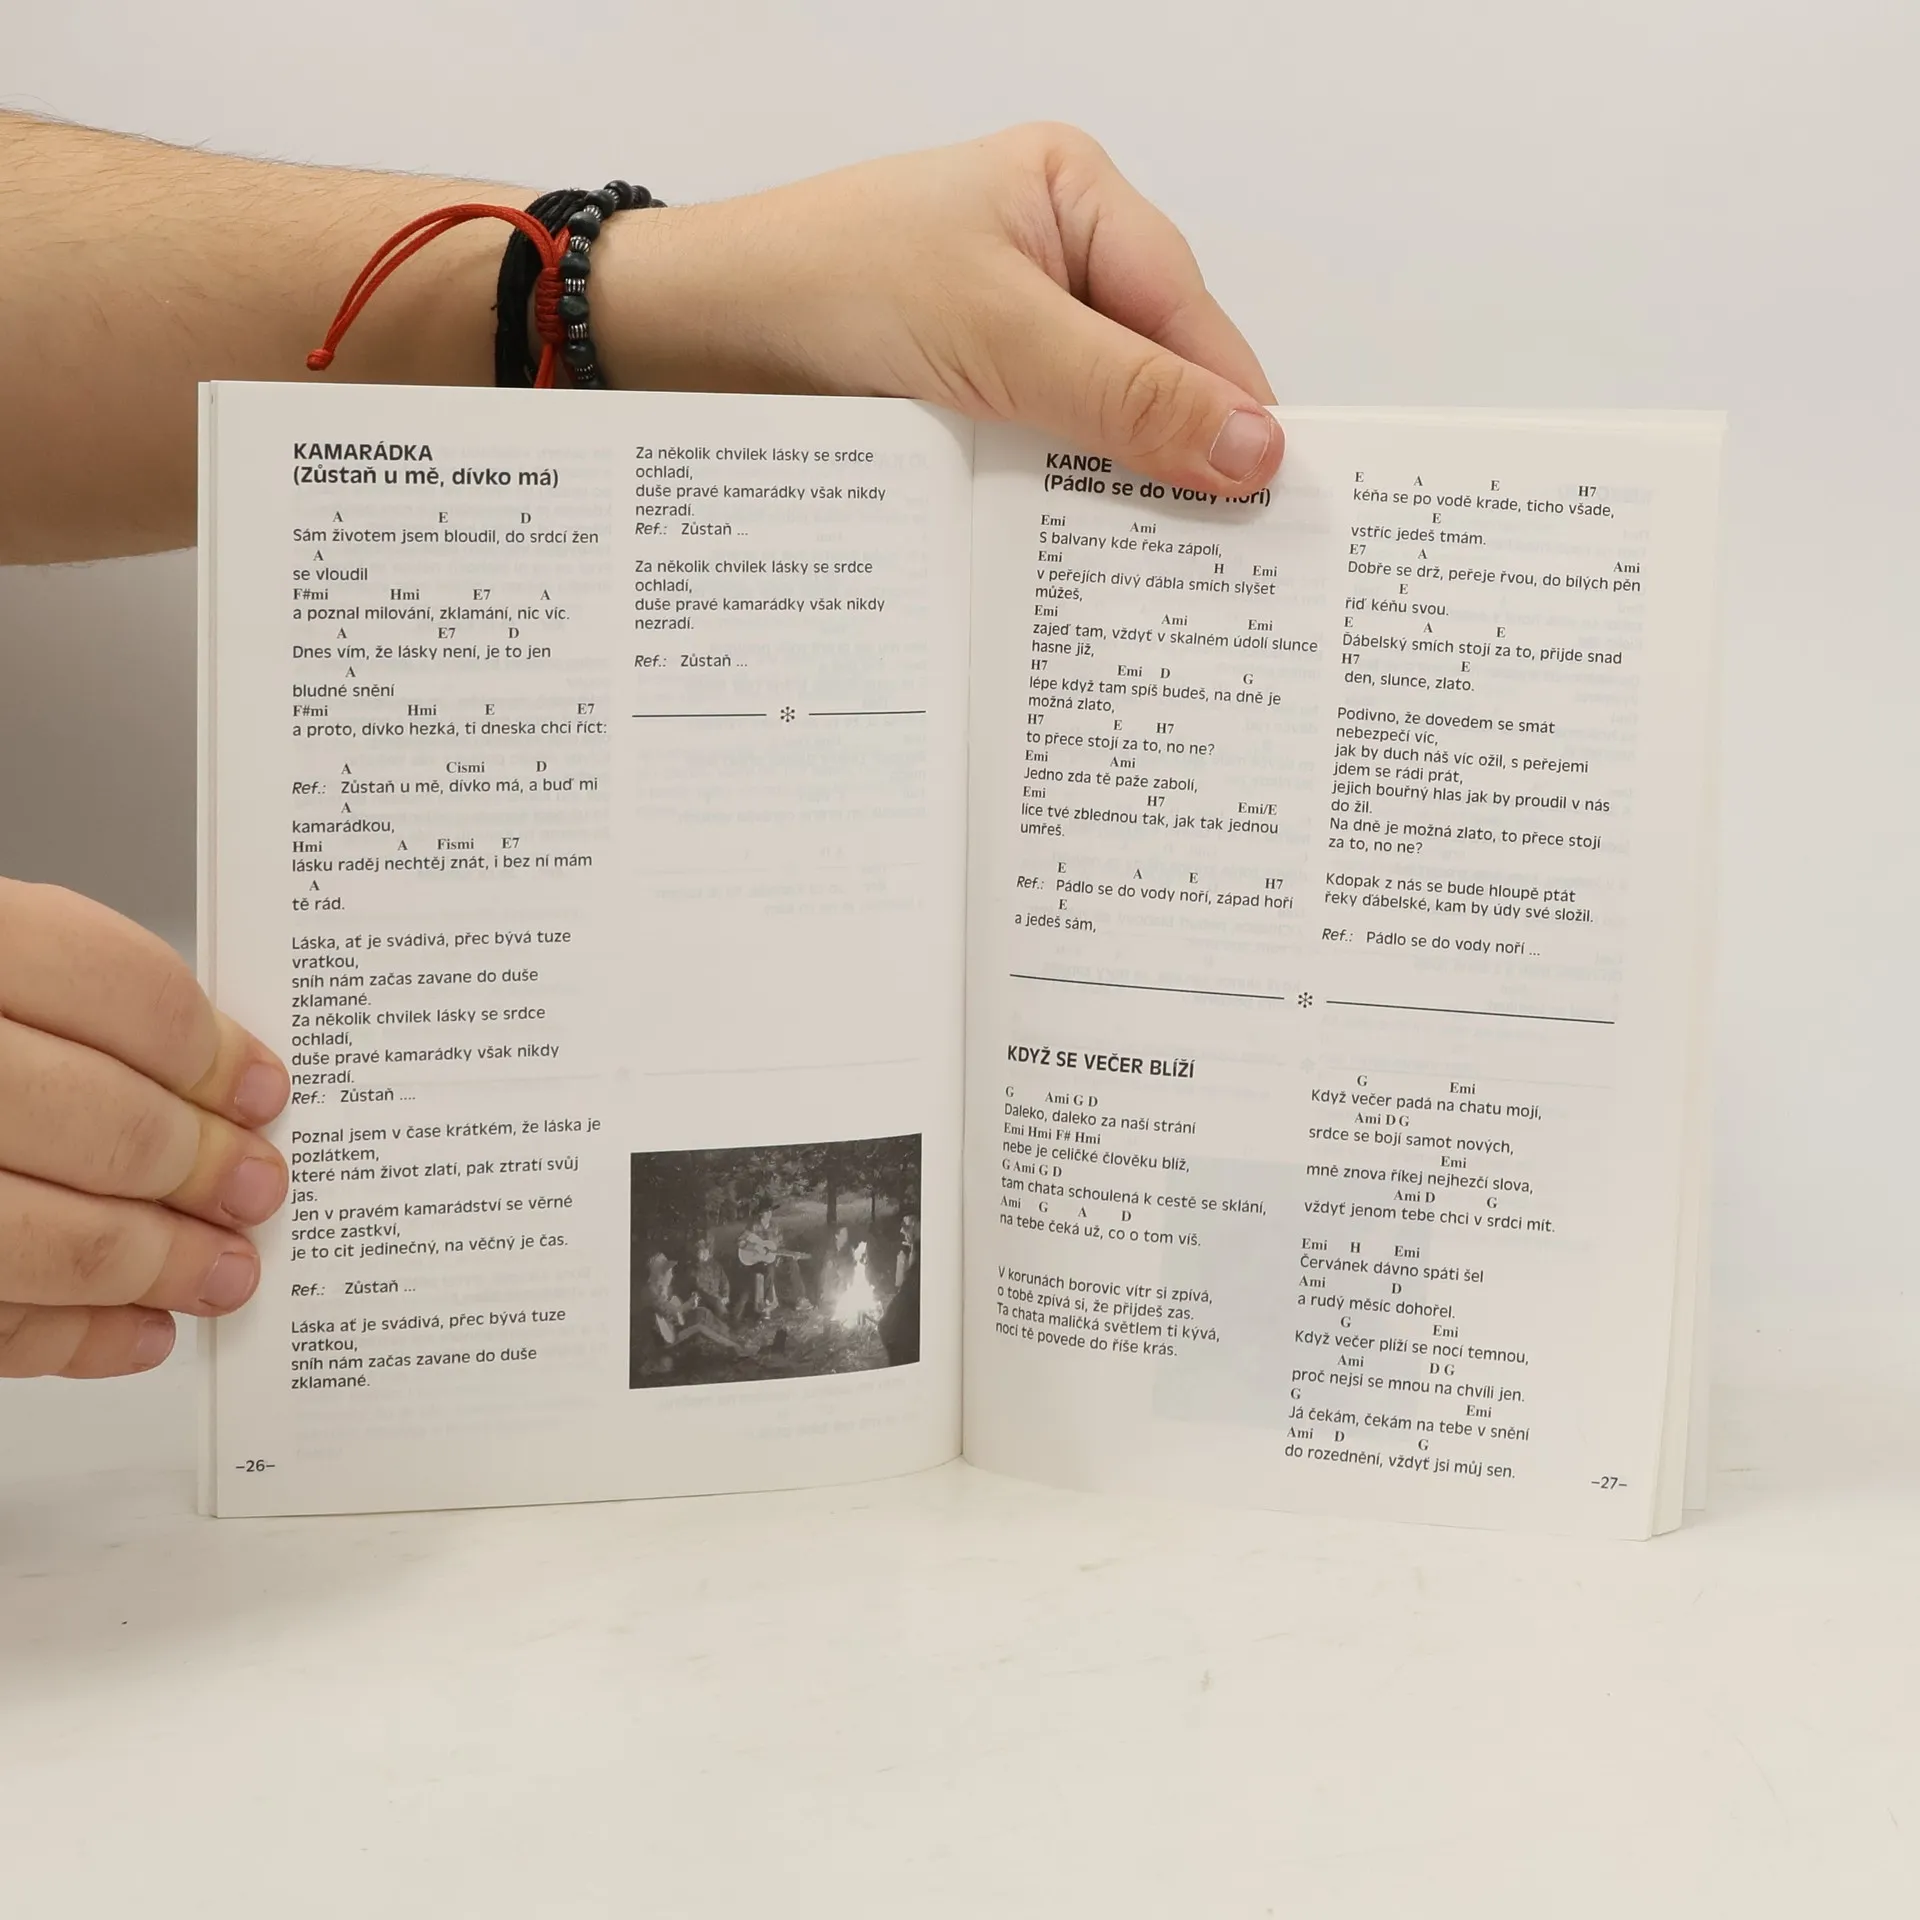 KAMARÁDKA
(Zůstaň u mě, dívko má)
A E D
Sám životem jsem bloudil, do srdcí žen
A
se vloudil
F#mi Hmi E7 A
a poznal milování, zklamání, nic víc.
A E7 D
Dnes vím, že lásky není, je to jen
A
bludné snění
F#mi Hmi E E7
a proto, dívko hezká, ti dneska chci říct:
A Cismi D
Ref.: Zůstaň u mě, dívko má, a buď mi
A
kamarádkou,
Hmi A Fismi E7
lásku raděj nechtěj znát, i bez ní mám
A
tě rád.
Láska, ať je svádivá, přec bývá tuze
vratkou,
sníh nám začas zavane do duše
zklamané.
Za několik chvilek lásky se srdce
ochladí,
duše pravé kamarádky však nikdy
nezradí.
Ref.: Zůstaň ....
Poznal jsem v čase krátkém, že láska je
pozlátkem,
které nám život zlatí, pak ztratí svůj
jas.
Jen v pravém kamarádství se věrné
srdce zastkví,
je to cit jedinečný, na věčný je čas.
Ref.: Zůstaň ...
Láska ať je svádivá, přec bývá tuze
vratkou,
sníh nám začas zavane do duše
zklamané.
Za několik chvilek lásky se srdce
ochladí,
duše pravé kamarádky však nikdy
nezradí.
Ref.: Zůstaň ...
Za několik chvilek lásky se srdce
ochladí,
duše pravé kamarádky však nikdy
nezradí.
Ref.: Zůstaň ...
–26–
KANOE
(Pádlo se do vody noří)
Emi Ami
S balvany kde řeka zápolí,
Emi H Emi
v peřejích divý ďábla smích slyšet
můžeš,
Emi Ami Emi
zajeď tam, vždyť v skalném údolí slunce
hasne již,
H7 Emi D G
lépe když tam spíš budeš, na dně je
možná zlato,
H7 E H7
to přece stojí za to, no ne?
Emi Ami
Jedno zda tě paže zabolí,
Emi H7 Emi/E
líce tvé zblednou tak, jak tak jednou
umřeš.
E A E H7
Ref.: Pádlo se do vody noří, západ hoří
E
a jedeš sám,
E A E H7
kéňa se po vodě krade, ticho všade,
E
vstříc jedeš tmám.
E7 A Ami
Dobře se drž, peřeje řvou, do bílých pěn
E
řiď kéňu svou.
E A E
Ďábelský smích stojí za to, přijde snad
H7 E
den, slunce, zlato.
Podivno, že dovedem se smát
nebezpečí víc,
jak by duch náš víc ožil, s peřejemi
jdem se rádi prát,
jejich bouřný hlas jak by proudil v nás
do žil.
Na dně je možná zlato, to přece stojí
za to, no ne?
Kdopak z nás se bude hloupě ptát
řeky ďábelské, kam by údy své složil.
Ref.: Pádlo se do vody noří ...
KDYŽ SE VEČER BLÍŽÍ
G Ami G D
Daleko, daleko za naší strání
Emi Hmi F# Hmi
nebe je celičké člověku blíž,
G Ami G D
tam chata schoulená k cestě se sklání,
Ami G A D
na tebe čeká už, co o tom víš.
V korunách borovic vítr si zpívá,
o tobě zpívá si, že přijdeš zas.
Ta chata maličká světlem ti kývá,
nocí tě povede do říše krás.
G Emi
Když večer padá na chatu mojí,
Ami D G
srdce se bojí samot nových,
Emi
mně znova říkej nejhezčí slova,
Ami D G
vždyť jenom tebe chci v srdci mít.
Emi H Emi
Červánek dávno spáti šel
Ami D
a rudý měsíc dohořel.
G Emi
Když večer plíží se nocí temnou,
Ami D G
proč nejsi se mnou na chvíli jen.
G Emi
Já čekám, čekám na tebe v snění
Ami D G
do rozednění, vždyť jsi můj sen.
–27–